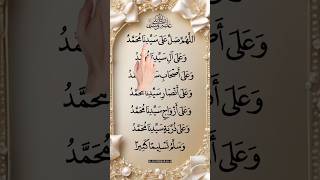 اَللّٰهُمَّ صَلِّ عَلَى سَيِّدِنَا مُحَمَّدُ
وَعَلَى آلِ سَيِّدِنَا مُحَمَّدُ
وَعَلَى أَصْحَابِ مُحَمَّدُ
وَعَلَى أَنْصَارِ سَيِّدِنَا مُحَمَّدُ
وَعَلَى أَزْوَاجِ سَيِّدِنَا مُحَمَّدُ
وَعَلَى ذُرِّيَّةِ سَيِّدِنَا مُحَمَّدُ
وَسَلِّمْ تَسْلِيمًا كَثِيرًا